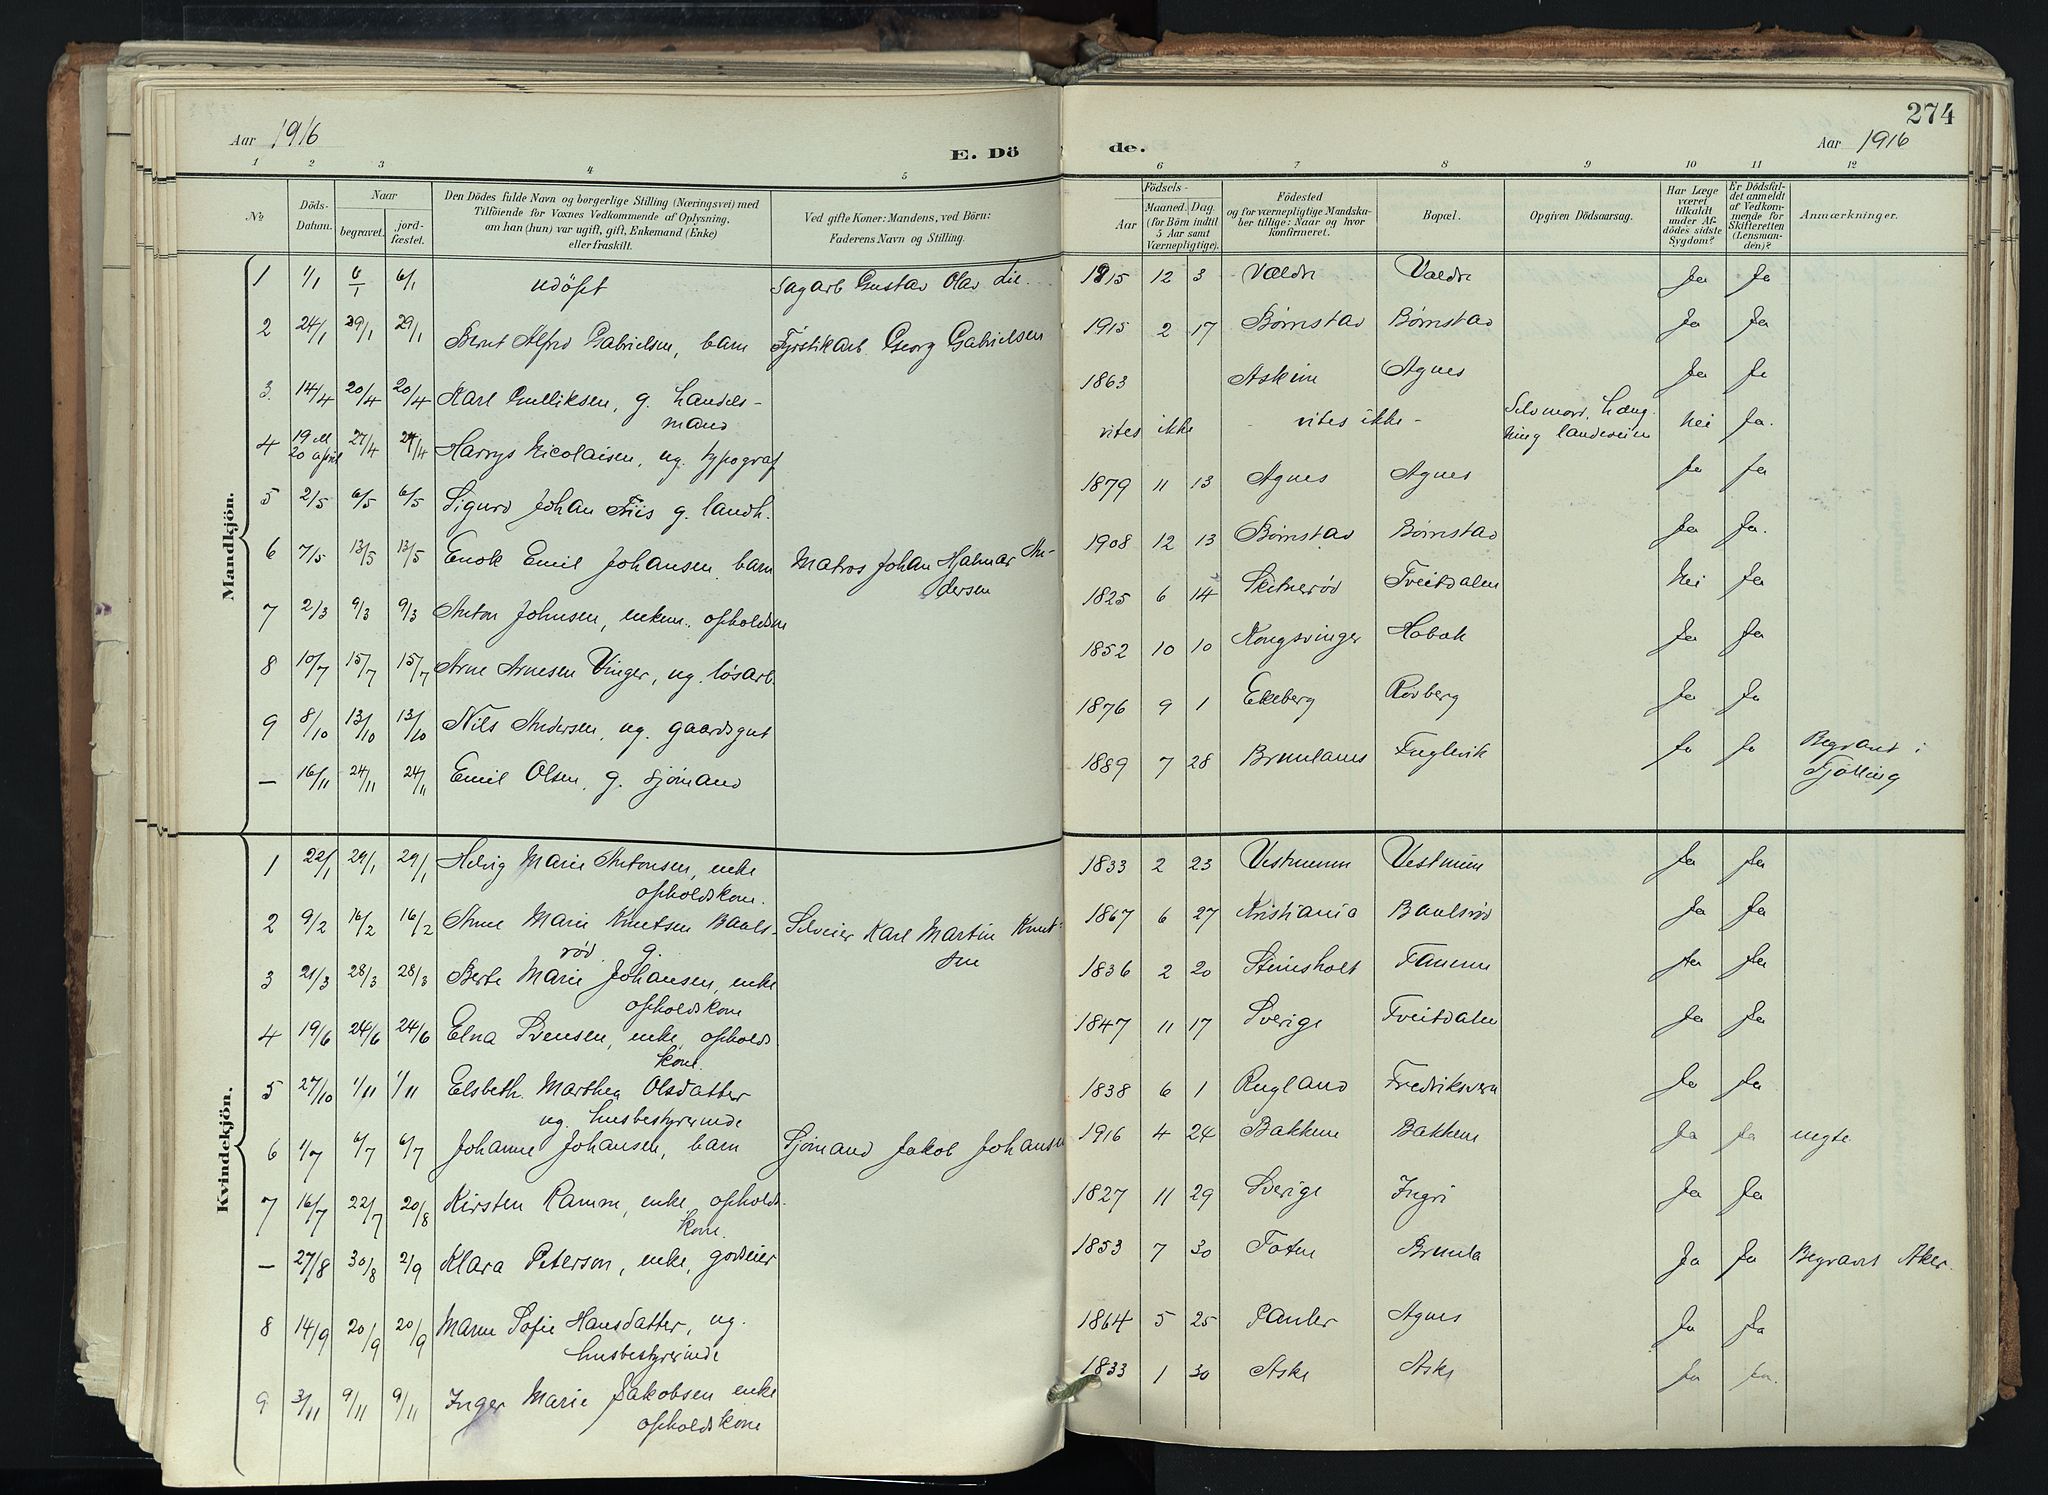 274
Aar 1916
E. Dö
de.
Aar 1916
1 2 3 4 5 6 7 8 9 10 11 12
No
Döds-
Datum.
Naar
begravet.
jord-
fæstet.
Den Dödes fulde Navn og borgerlige Stilling (Næringsvei) med
Tilföiende for Voxnes Vedkommende af Oplysning,
om han (hun) var ugift, gift, Enkemand (Enke)
eller fraskilt.
Ved gifte Koner: Mandens, ved Börn:
Faderens Navn og Stilling.
Födsels-
Aar
Maaned. Dag.
(for Börn indtil
5 Aar samt
Værnepligtige).
Födested
og for værnepligtige Mandska-
ber tillige: Naar og hvor
konfirmeret.
Bopæl.
Opgiven Dödsaarsag.
Har Læge
været
tilkaldt
under Af-
dödes sidste
Sygdom?
Er Dödsfal-
det anmeldt
af Vedkom-
mende for
Skifteretten
(Lensman-
den)?
Anmærkninger.
Mandkjön.
1 1/1 6/1 6/1 udöpt Sagarb Gustav Olav Lie 1915 12 3 Vældre Vældre Ja Ja
2 24/1 29/1 29/1 Bernt Alfred Gabrielsen, barn Fyrstikarb. Georg Gabrielsen 1915 2 17 Børnstad Børnstad Ja Ja
3. 14/4 20/4 20/4 Karl Gulliksen, g. handels- 1863 Askim Agnes Ja Ja
mand
4 19 el 20 april 27/4 27/4 Harrys Nicolaisen, ug. typograf vites ikke - vites ikke - Selvmord. Hæng- Nei Ja.
ning landeveien
5 2/5 6/5 6/5 Sigurd Johan Friis g. landh. 1879 11 13 Agnes Agnes Ja Ja
6 7/5 13/5 13/5 Enok Emil Johansen barn Matros Johan Hjalmar An- 1908 12 13 Børnstad Børnstad Ja Ja.
dersen
7 2/3 9/3 9/3 Anton Johnsen, enkem. opholdsm 1825 6 14 Tveitdalen Nei Ja
8 10/7 15/7 15/7 Arne Arnesen Vinger, ug. løsarb. 1852 10 10 Kongsvinger Hobæk Ja Ja
9 8/10 13/10 13/10 Nils Andersen, ug. gaardsgut 1876 9 1 Ekeberg Rødberg Ja Ja
— 16/11 24/11 24/11 Emil Olsen, g. sjømand 1889 7 28 Brunlanes Fuglevik Ja Ja Begravet i
Tjølling
Kvindekjön.
1 22/1 29/1 29/1 Helvig Marie Antonsen, enke 1833 2 23 Vestmunn Vestmunn Ja Ja
opholdskone.
2 9/2 16/2 16/2 Anne Marie Knutsen Baals- Selveier Karl Martin Knut- 1867 6 27 Kristiania Baalsrød Ja Ja
rød g. sen
3 21/3 28/3 28/3 Berte Marie Johansen, enke 1836 2 20 Steinsholt Tanum Ja Ja
opholdskone
4 19/6 24/6 24/6 Elna Svensen, enke, opholds 1847 11 17 Sverige Tveitdalen Ja Ja
kone.
5 27/10 1/11 1/11 Elsbeth. Marthea Olsdatter 1838 6 1 Rugland Fredriksvern Ja Ja
ug. husbestyrerinde
6 1/7 6/7 6/7 Johanne Johansen, barn Sjømand Jakob Johansen 1916 4 24 Bakken Bakken Ja Ja uegte
7 16/7 22/7 20/8 Kirsten Ramm, enke, opholds- 1827 11 29 Sverige Ja Ja
kone.
— 27/8 30/8 2/9 Klara Peterson, enke, godseier 1853 7 30 Toten Brunla Ja Ja Begravet Aker.
8 14/9 20/9 20/9 Maren Sofie Hansdatter, ug. 1864 5 25 Pauler Agnes Ja Ja
husbestyrerinde
9 3/11 9/11 9/11 Inger Marie Jakobsen enke 1833 1 30 Aske Aske Ja Ja.
opholdskone